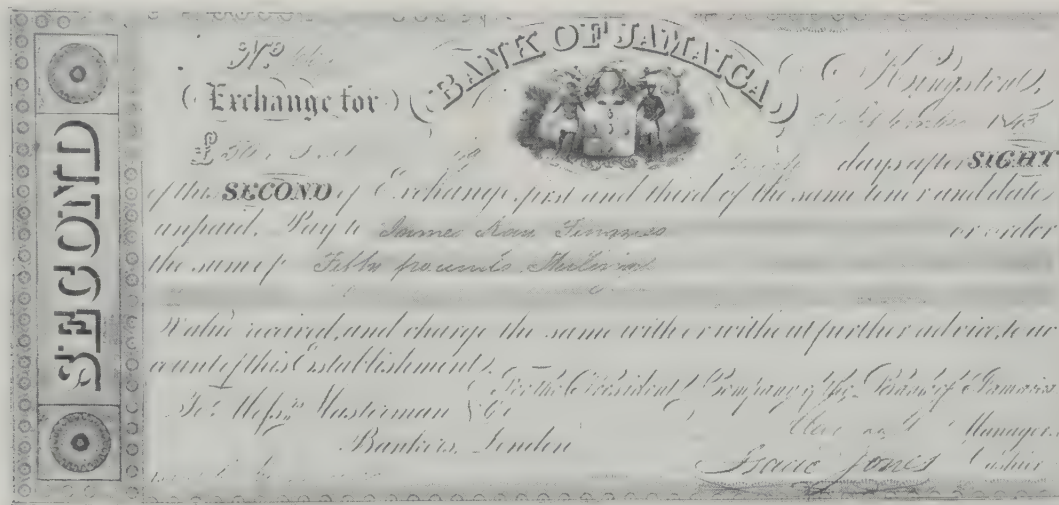 SECOND
No
BANK OF JAMAICA
Kingston,
1843
Exchange for
£
days after SIGHT
of this SECOND of Exchange, first and third of the same tenor and date
unpaid, Pay to James or order
the sum of Fifty pounds Sterling
Value received, and charge the same with or without further advice, to ac
count of this Establishment.
For the President & Company of the Bank of Jamaica
To Messrs Masterman & Co
Manager.
Bankers, London
Isaac Jones Cashier